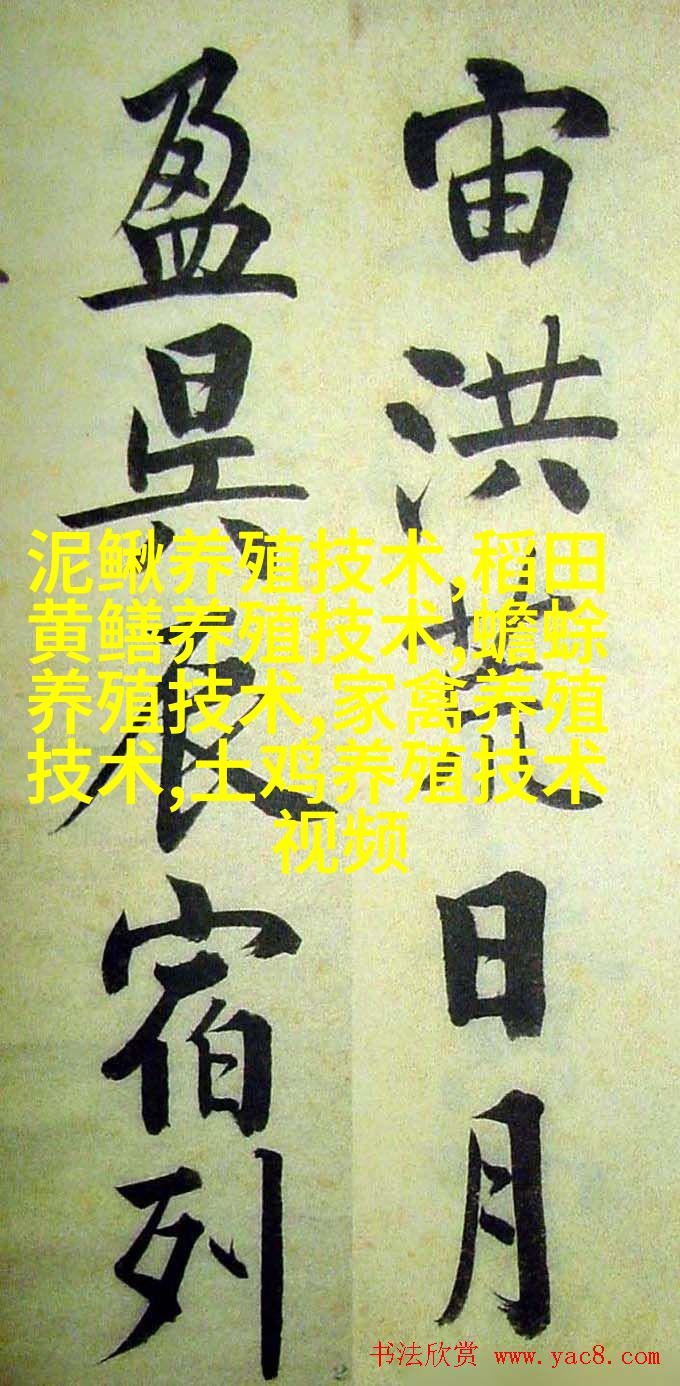 宙洪荒日月
盈昃辰宿列
泥鳅养殖技术,稻田
黄鳝养殖技术,蟾蜍
养殖技术,家禽养殖
技术,土鸡养殖技术
视频
书法欣赏 www.yac8.com